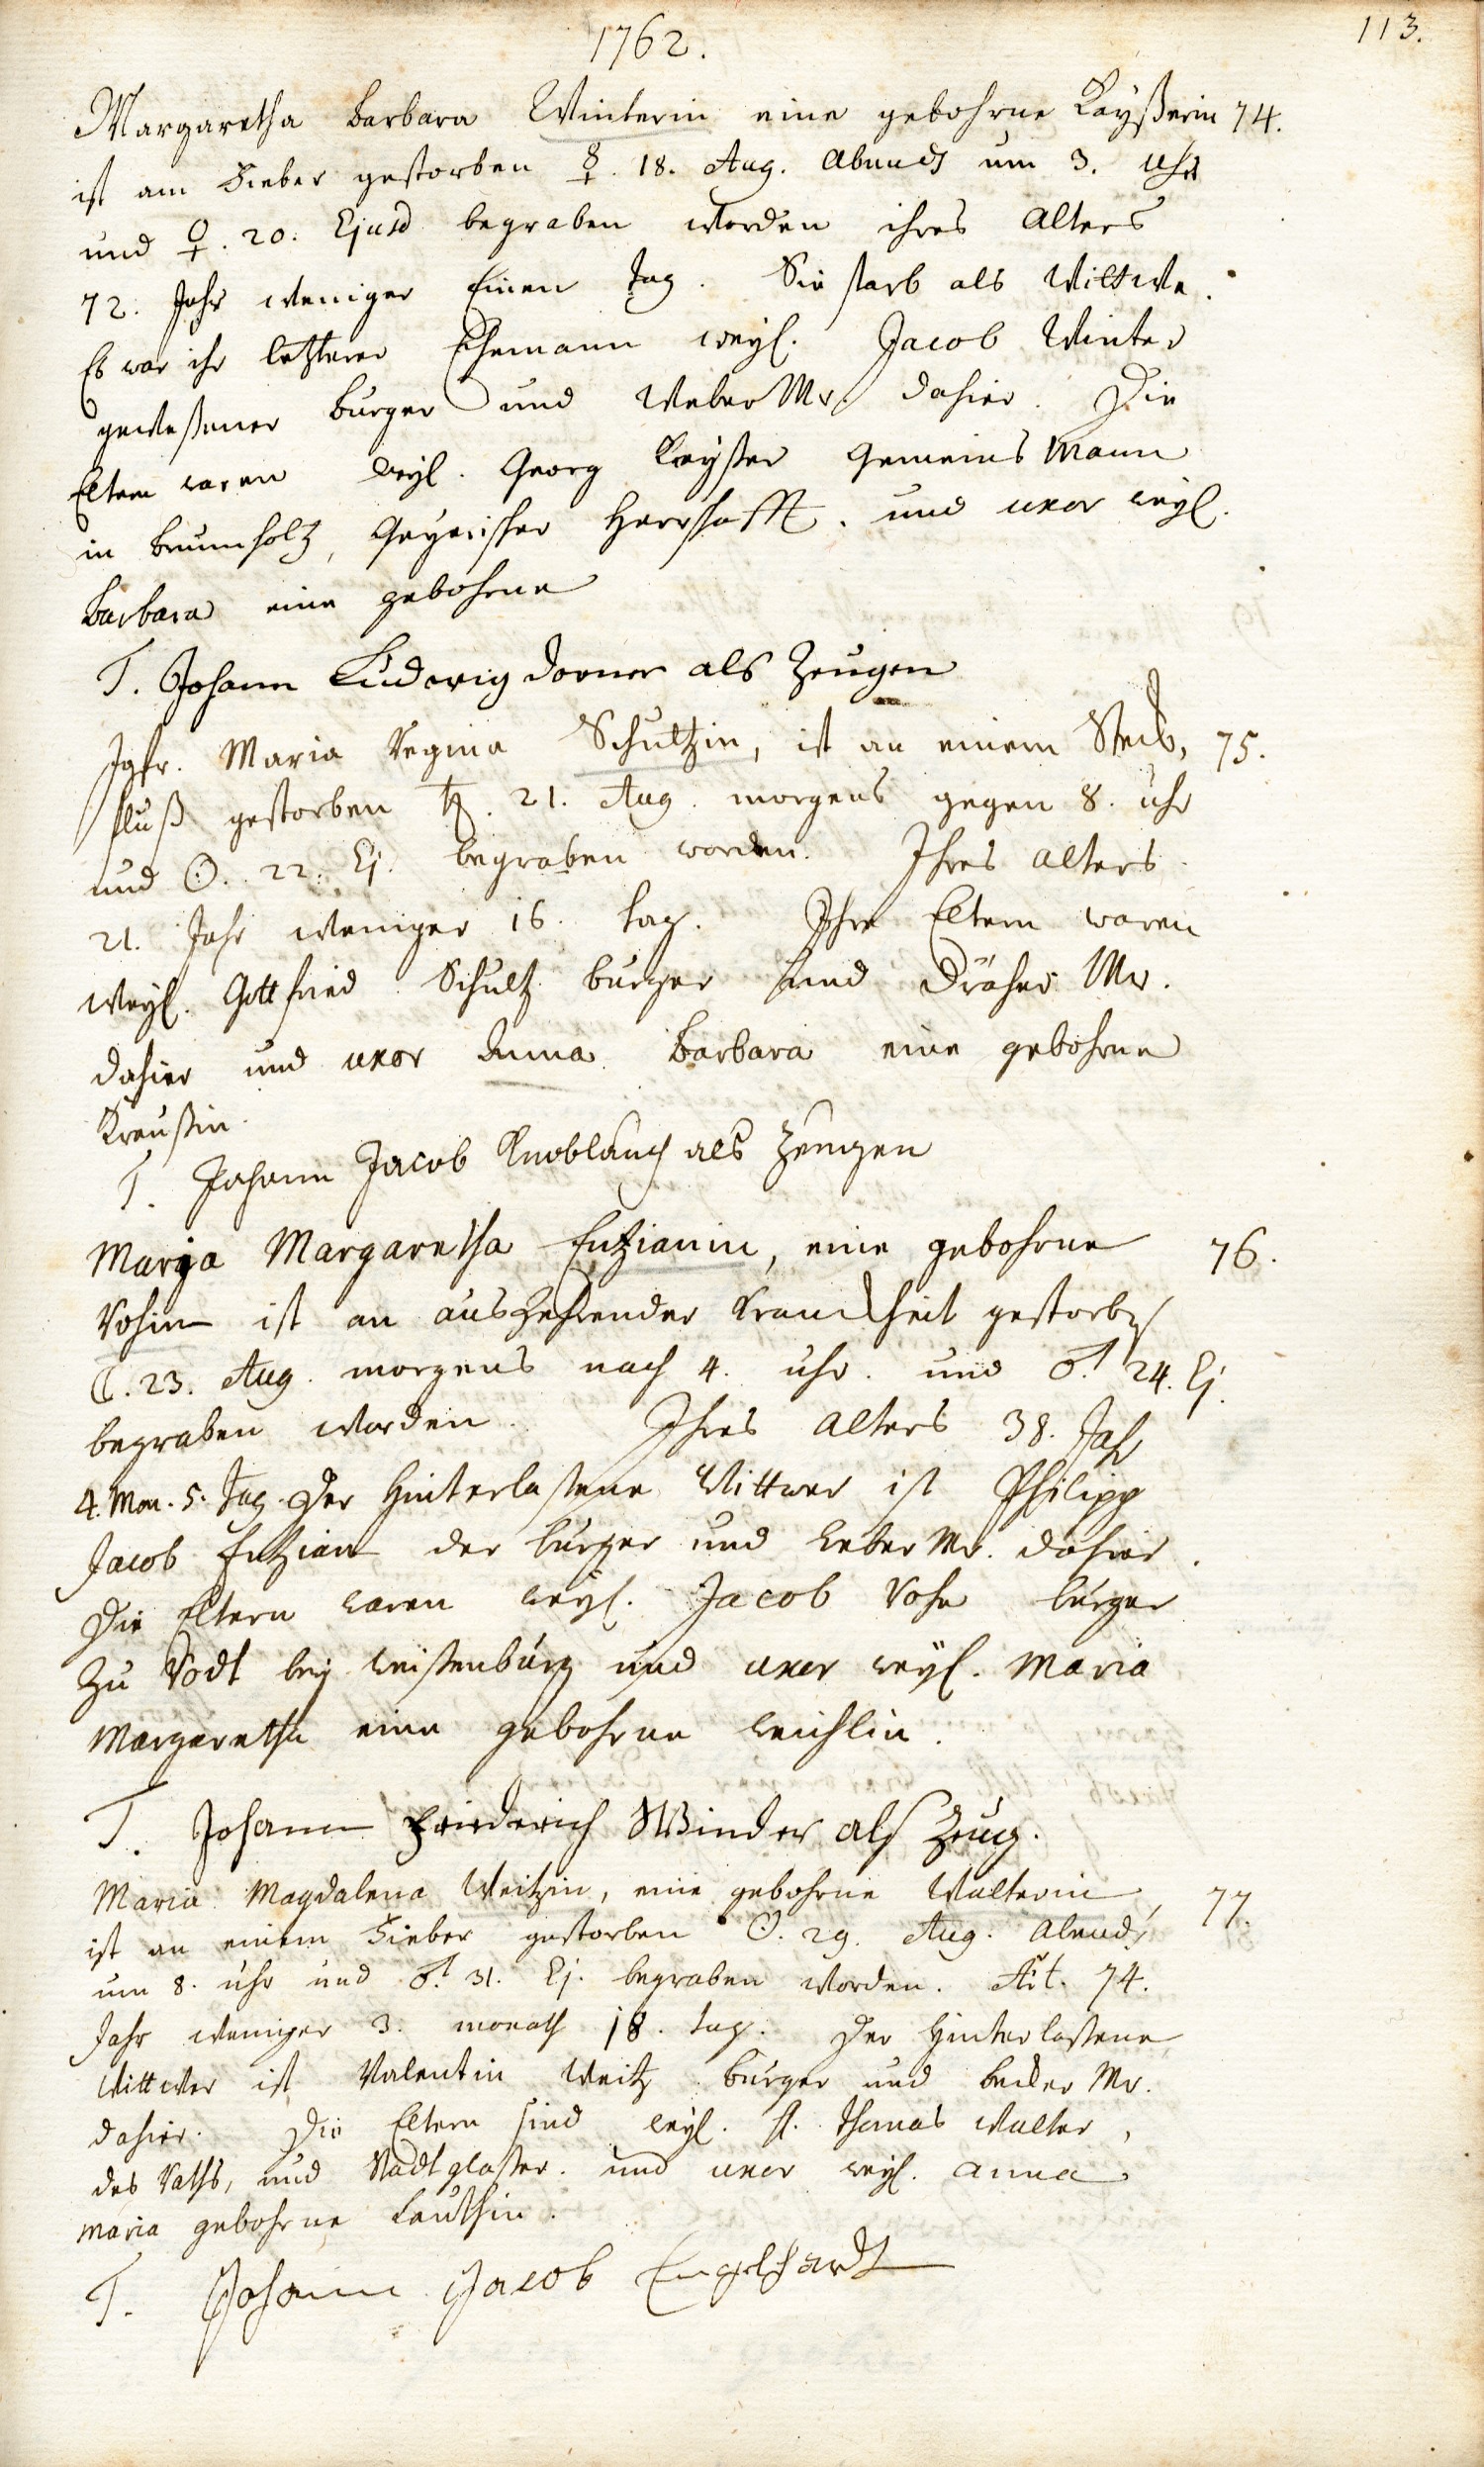 113.
1762.
Margaretha Barbara Winterin eine gebohrne Kayßerin 74.
ist am Fieber gestorben ☿. 18. Aug. Abends um 3. Uhr
und ♀. 20. Ejusd begraben worden ihres Alters
72. Jahr weniger Einen tag. Sie starb als Wittwe.
Es war ihr letzterer Ehemann weyl. Jacob Winter
geweßener burger und Weber Mr. dahier. Die
Eltern waren weyl. Georg Kayßer Gemeins Mann
in Geyerischer Herrschafft. und uxor weyl.
Barbara eine gebohrne
T. Johann Ludwig Dorner als Zeugen
Jgfr. Maria Regina Schultzin, ist an einem Steck, 75.
fluß gestorben ♄. 21. Aug. morgens gegen 8. uhr
und ☉. 22. Ej. begraben worden. Ihres alters
21. Jahr weniger 16. tag. Ihre Eltern waren
Weyl. Gottfried Schultz burger und Dräher Mr.
dahier und uxor Anna Barbara eine gebohrne
Kraußin.
T. Johann Jacob Knoblauch als Zeugen
Maria Margaretha Entzianin, eine gebohrne 76.
Rohin ist an auszehrender Kranckheit gestorben
☾. 23. Aug. morgens nach 4. uhr. und ♂. 24. Ej.
begraben worden. Ihres Alters 38. Jahr
4. Mon. 5. Tag. Der Hinterlaßene Wittwer ist Philipp
Jacob Entzian der burger und Weber Mr. dahier.
Die Eltern waren weyl. Jacob Rohe burger
zu Rodt bey Weißenburg und uxor weyl. Maria
Margaretha eine gebohrne
T. Johann Friederich Winder als Zeug.
Maria Magdalena Weitzin, eine gebohrne Walterin, 77.
ist an einem Fieber gestorben ☉. 29. Aug. Abends
um 8. uhr und ♂. 31. Ej. begraben worden. Aet. 74.
Jahr weniger 3. monath 18. tag. Der Hinterlaßene
Wittwer ist Valentin Weitz burger und Becker Mr.
dahier. Die Eltern sind weyl. H. Thomas Walter,
des Raths, und Stadtglaßer. und uxor weyl. Anna
Maria gebohrne Lauthin.
T. Johann Jacob Engelhardt